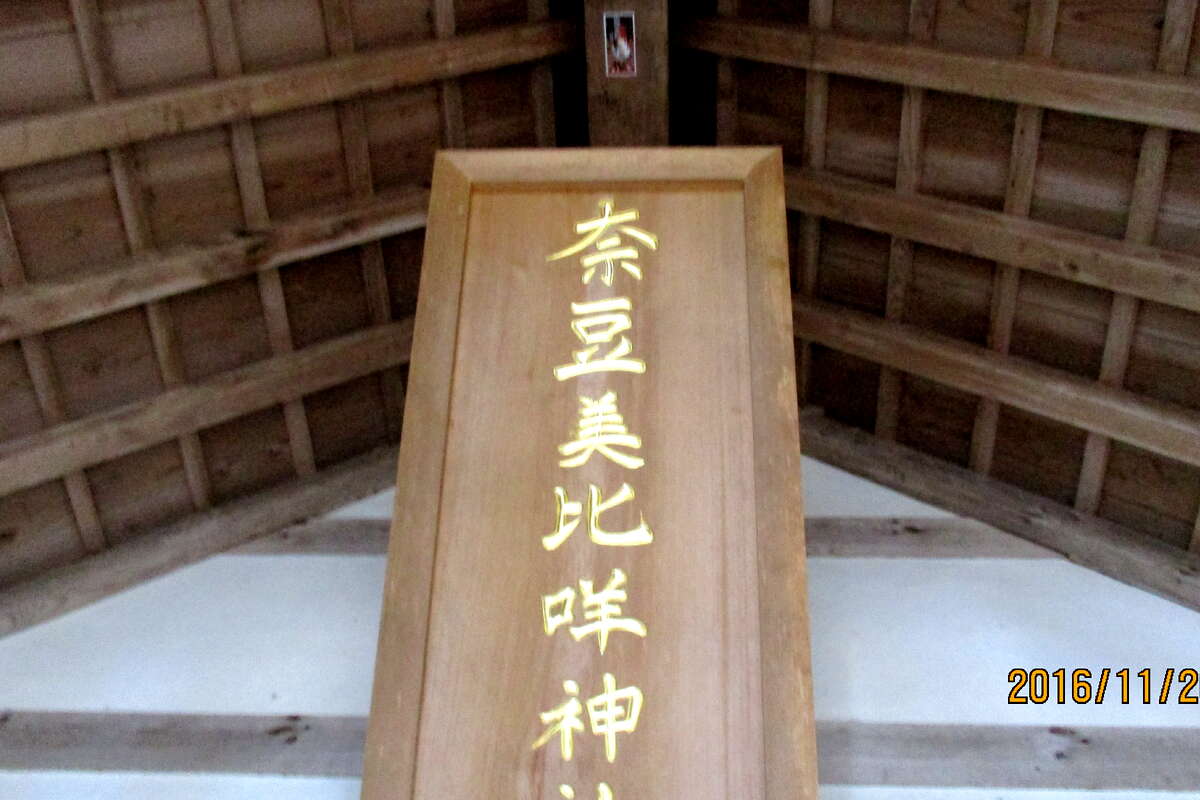 奈豆美比咩神
2016/11/2